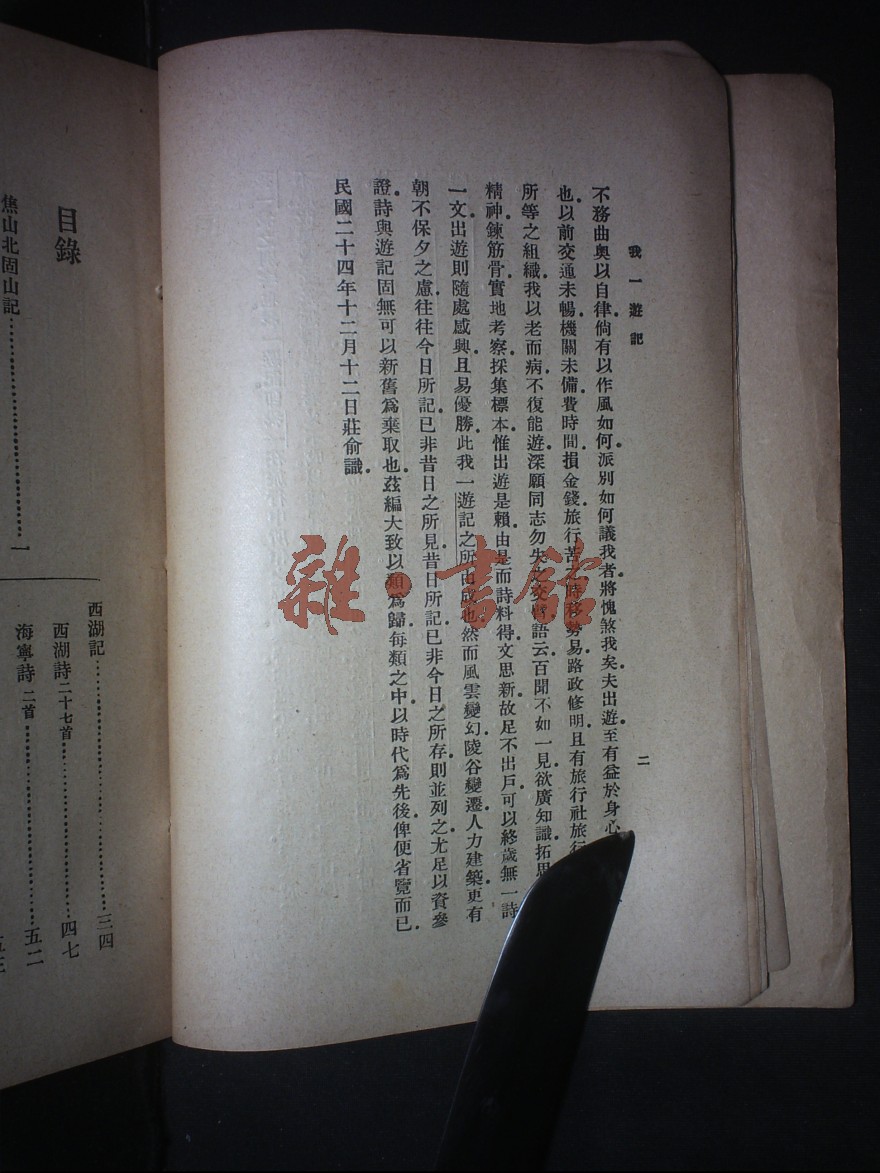 我一遊記
二
不務曲奧以自律倘有以作風如何派別如何議我者將愧煞我矣夫出遊至有益於身心
也以前交通未暢機關未備費時間損金錢旅行苦之時移勢易路政修明且有旅行社旅行
所等之組織我以老而病不復能遊深願同志勿失之交臂語云百聞不如一見欲廣知識拓思
精神鍊筋骨實地考察採集標本惟出遊是賴由是而詩料得文思新故足不出戶可以終歲無一詩
一文出遊則隨處感興且易優勝此我一遊記之所由成也然而風雲變幻陵谷變遷人力建築更有
朝不保夕之慮往往今日所記已非昔日之所見昔日所記已非今日之所存則並列之尤足以資參
證詩與遊記固無可以新舊爲棄取也茲編大致以類爲歸每類之中以時代爲先後俾便省覽而已
民國二十四年十二月十二日莊俞識
目錄
焦山北固山記…………………一
西湖記…………………三四
西湖詩二十七首…………………四七
海寧詩二首…………………五二
雜·書館